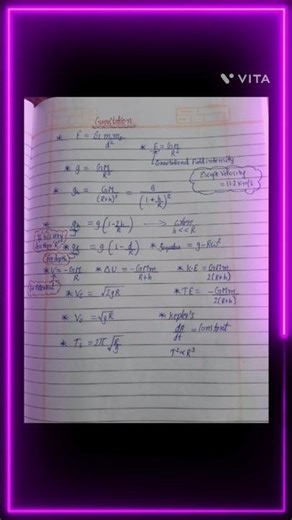 VITA
Gravitation
* F = G m₁m₂/d²
* E = GM/R²
Gravitational Field intensity
* g = GM/R²
Escape Velocity = 11.2 km/s
* gₕ = GM/(R+h)² = g/(1+h/R)²
* gₕ = g(1-2h/R) → when h<<R
* g = g(1-d/R) * g = g-Rω²
* V = -GM/R * ΔU = -GMm/R+h * K.E = GMm/2(R+h)
* Vₑ = √2gR * T.E = -GMm/2(R+h)
* V₀ = √gR * Kepler's
dA/dt = constant
* T = 2π√R/g
T²∝R³